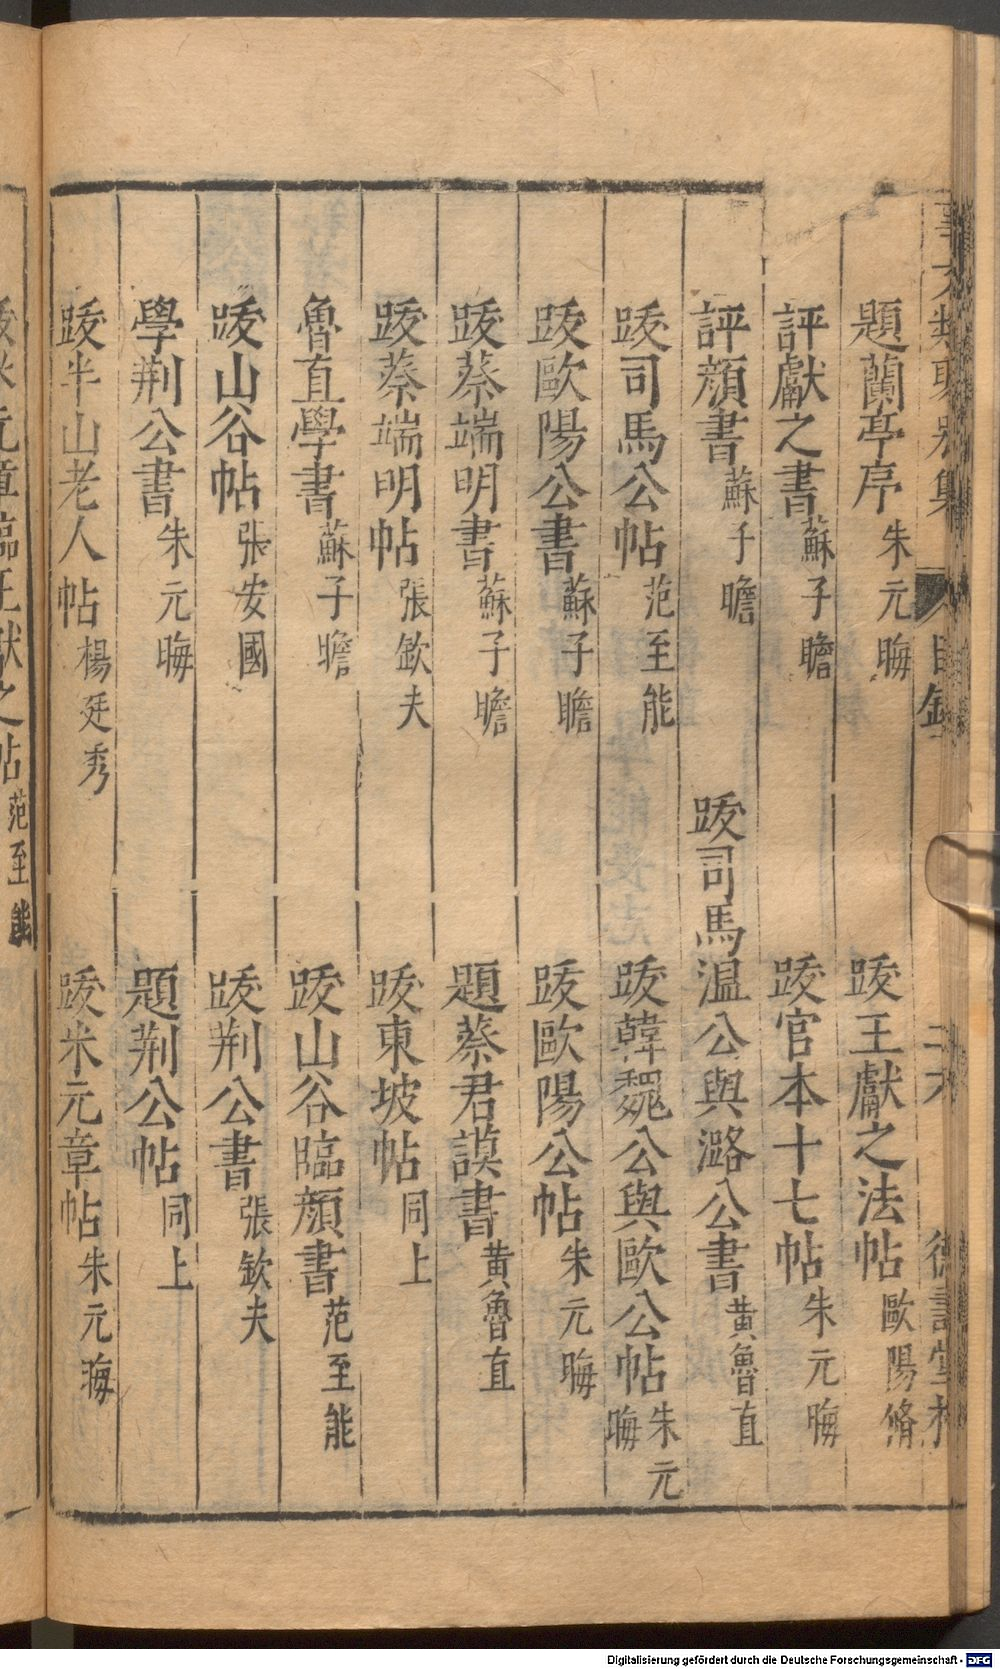 事文類聚別集 目錄 二十六 德壽堂梓
題蘭亭序 朱元晦 跋王獻之法帖 歐陽脩
評獻之書 蘇子瞻 跋官本十七帖 朱元晦
評顔書 蘇子瞻 跋司馬温公與潞公書 黄魯直
跋司馬公帖 范至能 跋韓魏公與歐公帖 朱元晦
跋歐陽公書 蘇子瞻 跋歐陽公帖 朱元晦
跋蔡端明書 蘇子瞻 題蔡君謨書 黄魯直
跋蔡端明帖 張欽夫 跋東坡帖 同上
魯直學書 蘇子瞻 跋山谷臨顔書 范至能
跋山谷帖 張安國 跋荆公書 張欽夫
學荆公書 朱元晦 題荆公帖 同上
跋半山老人帖 楊廷秀 跋米元章帖 朱元晦
跋米元章臨王獻之帖 范至能
Digitalisierung gefördert durch die Deutsche Forschungsgemeinschaft - DFG